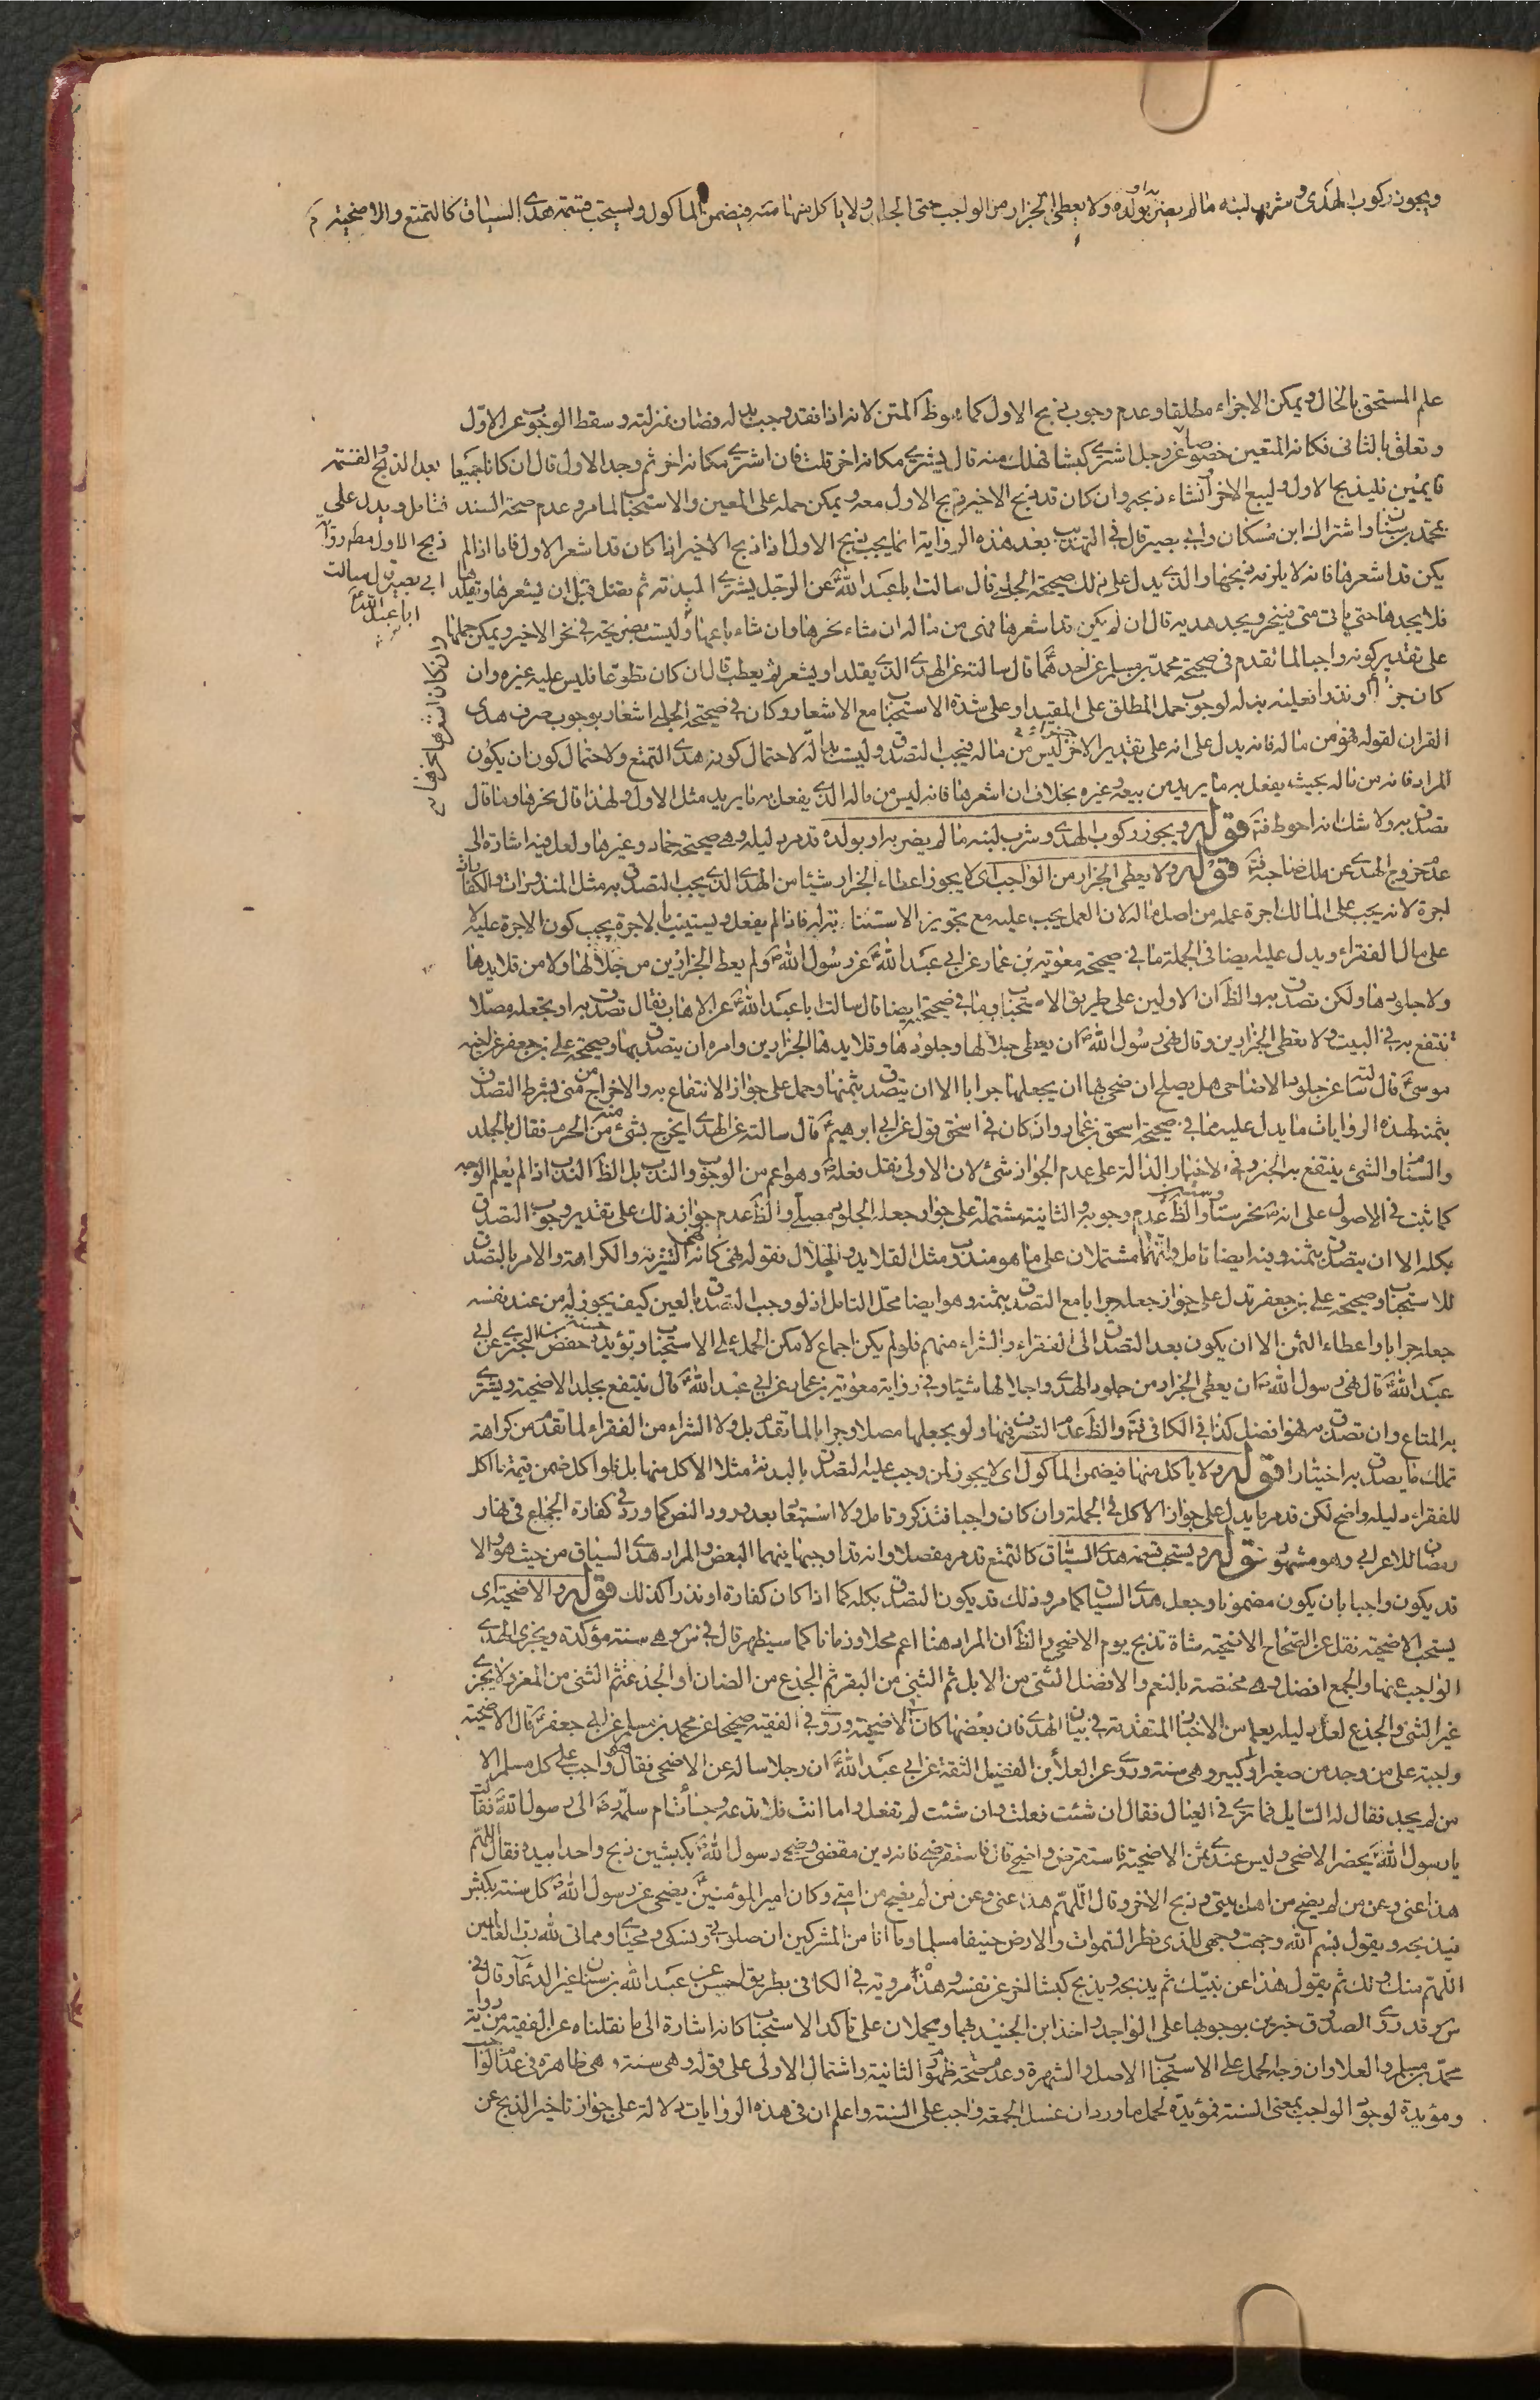 ويجوز ركوب الهدى وشرب لبنه ما لم يضر به او بولده ولا يعطى الجزار من الواجب حتى الجلد ولا ياكل منها منه فيضمن الماكول ويستحب قسمة هدى السياق كالتمتع والاضحية
علم المستحق بالحال ويمكن الاجزاء مطلقا وعدم وجوب ذبح الاول كما هو ظ المتن لانه اذا فقد وجب بدله فصار بمنزلته وسقط الوجوب عن الاول
وتعلق بالثانى فكانه المتعين خصوصا عن رجل اشترى كبشا فهلك منه قال يشترى مكانه اخر قلت فان اشترى مكانه اخر ثم وجد الاول قال ان كانا جميعا
قايمين فليذبح الاول وليبع الاخر انشاء ذبحه وان كان قد ذبح الاخير ذبح الاول معه ويمكن حمله على المعين والاستحباب لما مر وعدم صحة السند
بمحمد بن سنان واشتراك ابن مسكان وابى بصير قال فى التهذيب بعد هذه الرواية انما يجب ذبح الاول اذا ذبح الاخير اذا كان قد اشعر الاول فاما اذا لم
يكن قد اشعرها فانه لا يلزمه ذبحها والذى يدل على ذلك صحيحة الحلبى قال سالت ابا عبد الله ع عن الرجل يشترى البدنة ثم تضل قبل ان يشعرها ويقلدها
فلا يجدها حتى ياتى منى فينحر ويجد هديه قال ان لم يكن قد اشعرها فهى من ماله ان شاء نحرها وان شاء باعها وليست بصريحة فى نحر الاخير ويمكن حملها
بعد الذبح والقسمة
فتامل ويدل على
ذبح الاول مط رواية
ابى بصير قال سالت
ابا عبد الله ع
وان كان اشعرها نحرها
على تقدير كونه واجبا لما تقدم فى صحيحة محمد بن مسلم عن احدهما قال سالته عن الهدى الذى يقلد او يشعر ثم يعطب قال ان كان تطوعا فليس عليه غيره وان
كان جزاء او نذرا فعليه بدله لوجوب حمل المطلق على المقيد او على شدة الاستحباب مع الاشعار وكان فى صحيحة الحلبى اشعار بوجوب صرف هدى
القران لقوله فهو من ماله فانه يدل على انه على تقدير الاخر ليس من ماله فيجب التصدق وليست دالة لاحتمال كونه هدى التمتع ولاحتمال كون ان يكون
المراد فانه من ماله بحيث يفعل به ما يريد من بيعه وغيره بخلاف ان اشعرها فانه ليس من ماله الذى يفعل به ما يريد مثل الاول ولهذا قال نحرها وما قال
تصدق به ولا شك انه احوط فته قوله ويجوز ركوب الهدى وشرب لبنه ما لم يضر به او بولده قد مر دليله وهى صحيحة حماد وغيرها ولعل فيه اشارة الى
عدم خروج الهدى عن ملك صاحبه فته قوله ولا يعطى الجزار من الواجب اى لا يجوز اعطاء الجزار شيئا من الهدى الذى يجب التصدق به مثل المنذورات والكفارات
اجرة لانه يجب على المالك اجرة عمله من اصل ماله لان العمل يجب عليه مع تجويز الاستنابة به فاذا لم يفعل ويستنيب بالاجرة يجب كون الاجرة عليه لا
على مال الفقراء ويدل عليه ايضا فى الجملة ما فى صحيحة معوية بن عمار عن ابى عبد الله ع عن رسول الله ص ولم يعط الجزارين من جلالها ولا من قلايدها
ولا جلودها ولكن تصدق به والظ ان الاولين على طريق الاستحباب وما فى صحيحته ايضا قال سالت ابا عبد الله ع عن الاهاب فقال تصدق به او تجعله مصلا
تنتفع به فى البيت ولا تعطى الجزارين وقال نهى رسول الله ص ان يعطى جلالها وجلودها وقلايدها الجزارين وامره ان يتصدق بها وصحيحة على بن جعفر عن اخيه
موسى ع قال سالته عن جلود الاضاحى هل يصلح لمن ضحى بها ان يجعلها جرابا الا ان يتصدق بثمنها وحمل على جواز الانتفاع به والاخراج من منى بشرط التصدق
بثمنه لهذه الروايات ما يدل عليه مما فى صحيحة اسحق بن عمار وان كان فى اسحق قول عن ابى ابرهيم ع قال سالته عن الهدى ايخرج بشئ منه من الحرم فقال بالجلد
والسنام والشئ ينتفع به الخبر وفى الاخبار الدالة على عدم الجواز شئ لان الاولى نقل فعله ص وهو اعم من الوجوب والندب بل الظ الندب اذا لم يعلم الوجه
كما ثبت فى الاصول على انه ص نحر ستا وستين والظ عدم وجوبه والثانية مشتملة على جواز جعله الجلود مصلى والظ عدم جواز ذلك على تقدير وجوب التصدق
بكله الا ان يتصدق بثمنه وفيه ايضا تامل وانهما مشتملان على ما هو مندوب مثل القلايد والجلال فقوله نهى كانه التنزيه والكراهة والامر بالتصدق
للاستحباب وصحيحة على بن جعفر تدل على جواز جعله جرابا مع التصدق بثمنه وهو ايضا محل التامل اذ لو وجب التصدق بالعين كيف يجوز له من عند نفسه
جعله جرابا واعطاء الثمن الا ان يكون بعد التصدق الى الفقراء والشراء منهم فلو لم يكن اجماع لامكن الحمل على الاستحباب ويؤيده حسنة حفص البخترى عن ابى
عبد الله ع قال نهى رسول الله ص ان يعطى الجزار من جلود الهدى واجلالها شيئا وفى رواية معوية بن عمار عن ابى عبد الله ع قال ينتفع بجلد الاضحية ويشترى
به المتاع وان تصدق به فهو افضل كذا فى الكافى فته والظ عدم التصرف فيها ولو بجعلها مصلا وجرابا لما تقدم بل ولا الشراء من الفقراء لما تقدم من كراهة
تملك ما يصدق به اختيارا قوله ولا ياكل منها فيضمن الماكول اى لا يجوز لمن وجب عليه التصدق بالبدنة مثلا الاكل منها بل فلو اكل ضمن قيمة ما اكل
للفقراء دليله واضح لكن قد مر ما يدل على جواز الاكل فى الجملة وان كان واجبا فتذكر وتامل ولا استبعاد بعد ورود النص كما ورد فى كفارة الجماع فى نهار
رمضان للاعرابى وهو مشهور قوله ويستحب قسمة هدى السياق كالتمتع قد مر مفصلا وانه قد اوجبها فيهما البعض والمراد هدى السياق من حيث هو والا
قد يكون واجبا بان يكون مضمونا وجعل هدى السياق كما مر وذلك قد يكون التصدق بكله كما اذا كان كفارة او نذرا كذلك قوله والاضحية اى
يستحب الاضحية نقل عن الصحاح الاضحية شاة تذبح يوم الاضحى والظ ان المراد هنا اعم محلا وزمانا كما سيظهر قال فى س وهى سنة مؤكدة ويجزى الهدى
الواجب عنها والجمع افضل وهى مختصة بالنعم والافضل الثنى من الابل ثم الثنى من البقر ثم الجذع من الضان او الجذعة ثم الثنى من المعز ولا يجزى
غير الثنى والجذع لعل دليله يعلم من الاخبار المتقدمة فى بيان الهدى فان بعضها كان الاضحية وروى فى الفقيه صحيحا عن محمد بن مسلم عن ابى جعفر ع قال الاضحية
واجبة على من وجد من صغير او كبير وهى سنة وروى عن العلا بن الفضيل الثقة عن ابى عبد الله ع ان رجلا ساله عن الاضحى فقال هو واجب على كل مسلم الا
من لم يجد فقال له السايل فما ترى فى العيال فقال ان شئت فعلت وان شئت لم تفعل واما انت فلا تدعه وجاءت ام سلمة رض الى رسول الله ص فقالت
يا رسول الله ص يحضر الاضحى وليس عندى ثمن الاضحية فاستقرض واضحى قال فاستقرضى فانه دين مقضى وضحى رسول الله ص بكبشين ذبح واحدا بيده فقال اللهم
هذا عنى وعن من لم يضح من اهل بيتى وذبح الاخر وقال اللهم هذا عنى وعن من لم يضح من امتى وكان امير المؤمنين ع يضحى عن رسول الله ص كل سنة بكبش
فيذبحه ويقول بسم الله وجهت وجهى للذى فطر السموات والارض حنيفا مسلما وما انا من المشركين ان صلوتى ونسكى ومحياى ومماتى لله رب العالمين
اللهم منك ولك ثم يقول هذا عن نبيك ثم يذبحه ويذبح كبشا اخر عن نفسه وهذه مروية فى الكافى بطريق حسن عن عبد الله بن سنان عن ابى عبد الله ع وقال فى
س وقد روى الصدوق خبرين بوجوبها على الواجد واخذ ابن الجنيد بهما ويحملان على تاكد الاستحباب كانه اشارة الى ما نقلناه عن الفقيه من رواية
محمد بن مسلم والعلا وان وجه الحمل على الاستحباب الاصل والشهرة وعدم صحة ظهور الثانية واشتمال الاولى على قوله وهى سنة وهى ظاهرة فى عدم الواجب
ومؤيدة لوجود الواجب بمعنى السنة فمؤيدة لحمل ما ورد ان غسل الجمعة واجب على السنة واعلم ان فى هذه الروايات دلالة على جواز تاخير الذبح عن